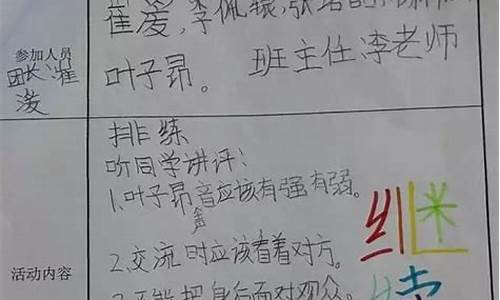 参加人员
团长：崔
李佩
叶子昂。 班主任李老师
排练
听同学讲评：
1.叶子昂声音应该有强有弱。
2.交流时应该看着对方。
活动内容
3.不能把身后面对观众。
继
续